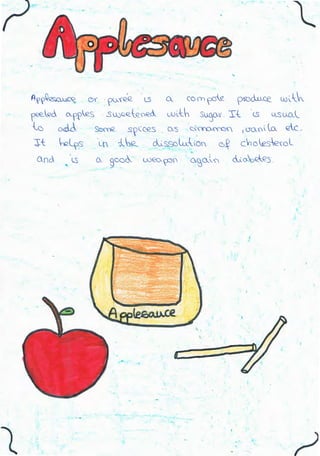 Applesauce
Applesauce or pureé is a compote produce with
peeled apples sweetened with sugar. It is usual
to add some spices as cinnamon ,vanila etc.
It helps in the dissolution of cholesterol
and is a good weapon again diabetes.
Applesauce